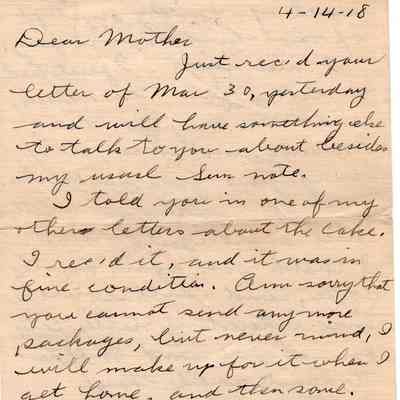 4-14-18
Dear Mother
Just rec'd your
letter of Mar 30, yesterday
and will have something else
to talk to you about besides
my usual Sun note.
I told you in one of my
other letters about the cake.
I rec'd it, and it was in
fine condition. Am sorry that
you cannot send any more
packages, but never mind, I
will make up for it when I
get home, and then some.